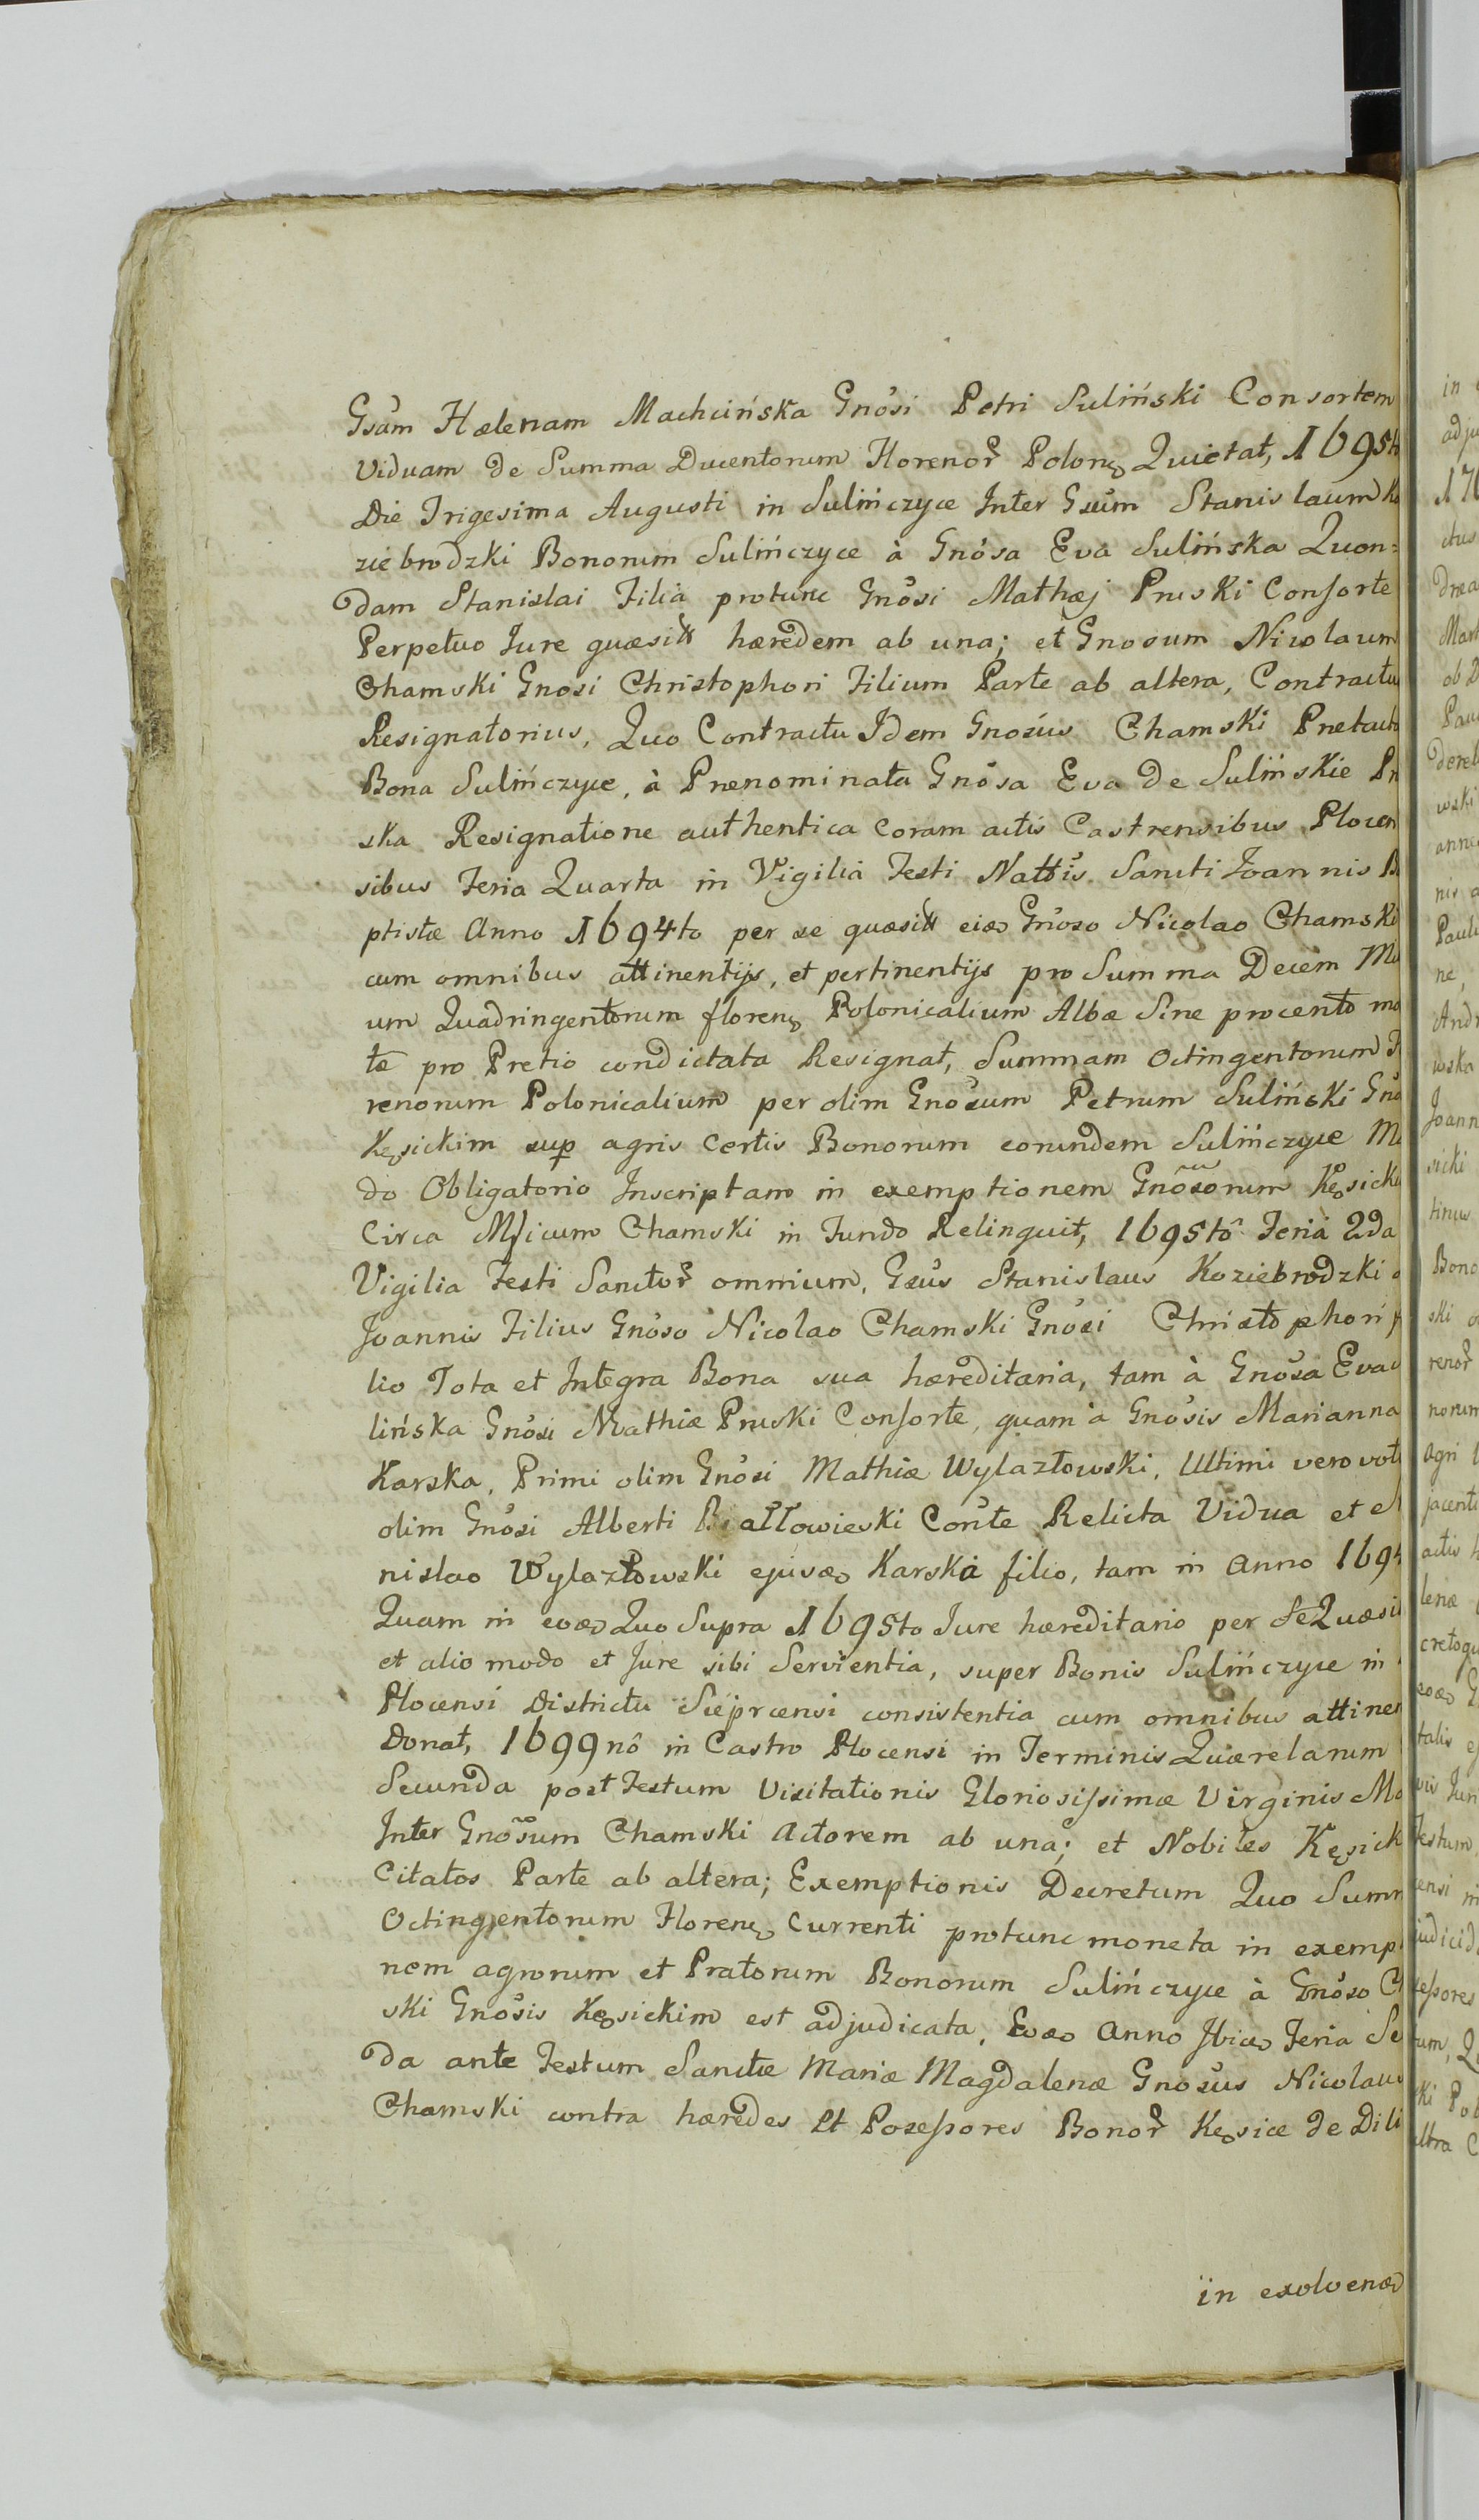 Gsam Hælenam Machcińska Gnosi Petri Suliński Consortem
Viduam de Summa Ducentorum Florenor Polon Quietat, 1695to
Die Trigesima Augusti in Sulińczyce Inter Gsum Stanislaum Ko
ziebrodzki Bonorum Sulińczyce à Gnosa Eva Sulińska Quon=
dam Stanislai Filia protunc Gnosi Mathæj Pruski Consorte
Perpetuo Jure quæsitt hæredem ab una; et Gnosum Nicolaum
Chamski Gnosi Christophori Filium Parte ab altera, Contractus
Resignatorius, Quo Contractu Idem Gnosus Chamski Prætacta
Bona Sulińczyce, à Prænominata Gnosa Eva de Sulińskie Pru
ska Resignatione authentica coram actis Castrensibus Plocen
sibus Feria Quarta in Vigilia Festi Nattis Sancti Joannis Ba
ptistæ Anno 1694to per se quæsitt eid Gnoso Nicolao Chamski
cum omnibus attinentijs, et pertinentijs pro Summa Decem Mil
um Quadringentorum floren Polonicalium Albæ Sine procento mo
tæ pro Pretio condictata Resignat, Summam Octingentorum Flo
renorum Polonicalium per olim Gnosum Petrum Suliński Gno
Kęsickim sup agris Certis Bonorum eorundem Sulińczyce Mo
do Obligatorio Inscriptam in exemptionem Gnosorum Kęsick
Circa Mficum Chamski in Fundo Relinquit, 1695tô Feria 2da
Vigilia Festi Sanctor omnium, Gsus Stanislaus Koziebrodzki o
Joannis Filius Gnoso Nicolao Chamski Gnosi Christophori fi
lio Tota et Integra Bona sua hæreditaria, tam à Gnosa Eva
lińska Gnosi Mathiæ Pruski Consorte, quam à Gnosis Marianna
Karska, Primi olim Gnosi Mathiæ Wylazłowski, Ultimi vero voti
olim Gnosi Alberti Białłowieski Conte Relicta Vidua et
nislao Wylazłowski ejusd Karska filio, tam in Anno 1694
Quam in eod Quo Supra 1695to Jure hæreditario per se Quæsi
et alio modo et Jure sibi Servientia, super Bonis Sulińczyce in
Plocensi Districtu Sieprcensi consistentia cum omnibus attinen
Donat, 1699nô in Castro Plocensi in Terminis Quærelarum
Secunda post Festum Visitationis Gloriosissimæ Virginis Ma
Inter Gnosum Chamski Actorem ab una; et Nobiles Kęsick
Citatos Parte ab altera; Exemptionis Decretum Quo Summ
Octingentorum Floren Currenti protunc moneta in exempt
nem agrorum et Pratorum Bonorum Sulińczyce à Gnoso Ch
ski Gnosis Kęsickim est adjudicata, Eod Anno Ibid Feria Se
da ante Festum Sanctæ Mariæ Magdalenæ Gnosus Nicolaus
Chamski contra hæredes Et Possessores Bonor Kęsice de Dili
in exolvend